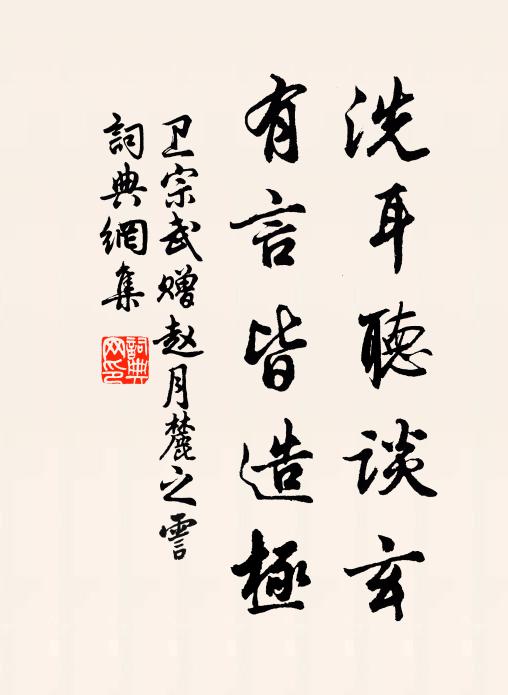 洗耳聽談玄
有言皆造極
卫宗武赠赵月麓之霅
詞典網集
詞典网印